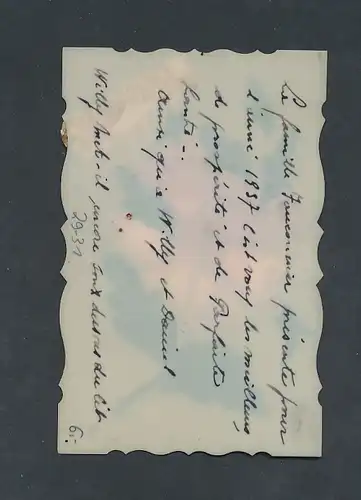 La famille Fauconnier présente pour
l'année 1937 c'est vous les meilleurs
de prospérité et de Parfaite
Santé -.
Ainsi qu'a Willy et Daniel
Willy met-il encore tout dessus du lit
29-31
6.-